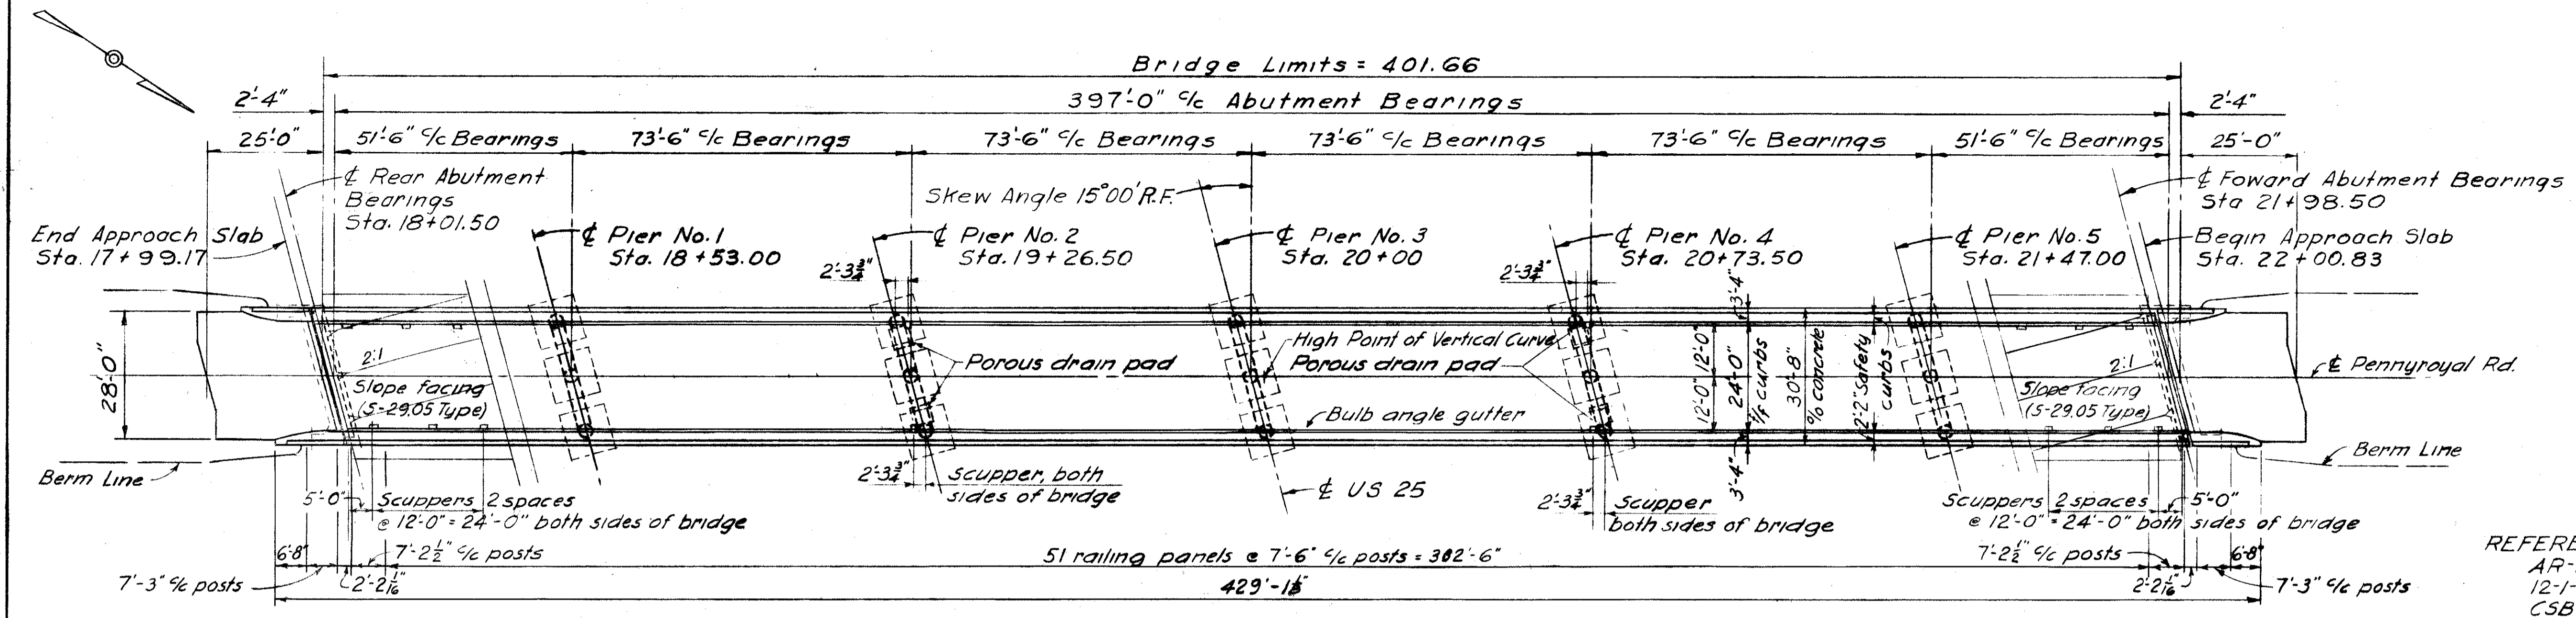 Bridge Limits = 401.66
2'-4"
397'-0" c/c Abutment Bearings
2'-4"
25'-0"
51'-6" c/c Bearings
73'-6" c/c Bearings
73'-6" c/c Bearings
73'-6" c/c Bearings
73'-6" c/c Bearings
51'-6" c/c Bearings
25'-0"
℄ Rear Abutment
Bearings
Sta. 18+01.50
Skew Angle 15°00' R.F.
℄ Foward Abutment Bearings
Sta 21+98.50
End Approach Slab
Sta. 17+99.17
℄ Pier No. 1
Sta. 18+53.00
℄ Pier No. 2
Sta. 19+26.50
℄ Pier No. 3
Sta. 20+00
℄ Pier No. 4
Sta. 20+73.50
℄ Pier No. 5
Sta. 21+47.00
Begin Approach Slab
Sta. 22+00.83
2'-3¾"
2'-3¾"
28'-0"
2:1
Slope facing
(S-29.05 Type)
Porous drain pad
High Point of Vertical Curve
Porous drain pad
Bulb angle gutter
3'-4"
12'-0"
12'-0"
24'-0"
f/f curbs
30'-8"
o/o concrete
2'-2" Safety
curbs
3'-4"
2:1
Slope facing
(S-29.05 Type)
℄ Pennyroyal Rd.
Berm Line
Berm Line
2'-3¾"
Scupper, both
sides of bridge
℄ US 25
2'-3¾"
Scupper
both sides of bridge
5'-0"
Scuppers 2 spaces
@ 12'-0" = 24'-0" both sides of bridge
Scuppers 2 spaces
@ 12'-0" = 24'-0" both sides of bridge
5'-0"
6'-8"
7'-2½" c/c posts
51 railing panels @ 7'-6" c/c posts = 382'-6"
7'-2½" c/c posts
6'-8"
7'-3" c/c posts
2'-2 1/16"
2'-2 1/16"
7'-3" c/c posts
REFERE
AR-
12-1-
CSB